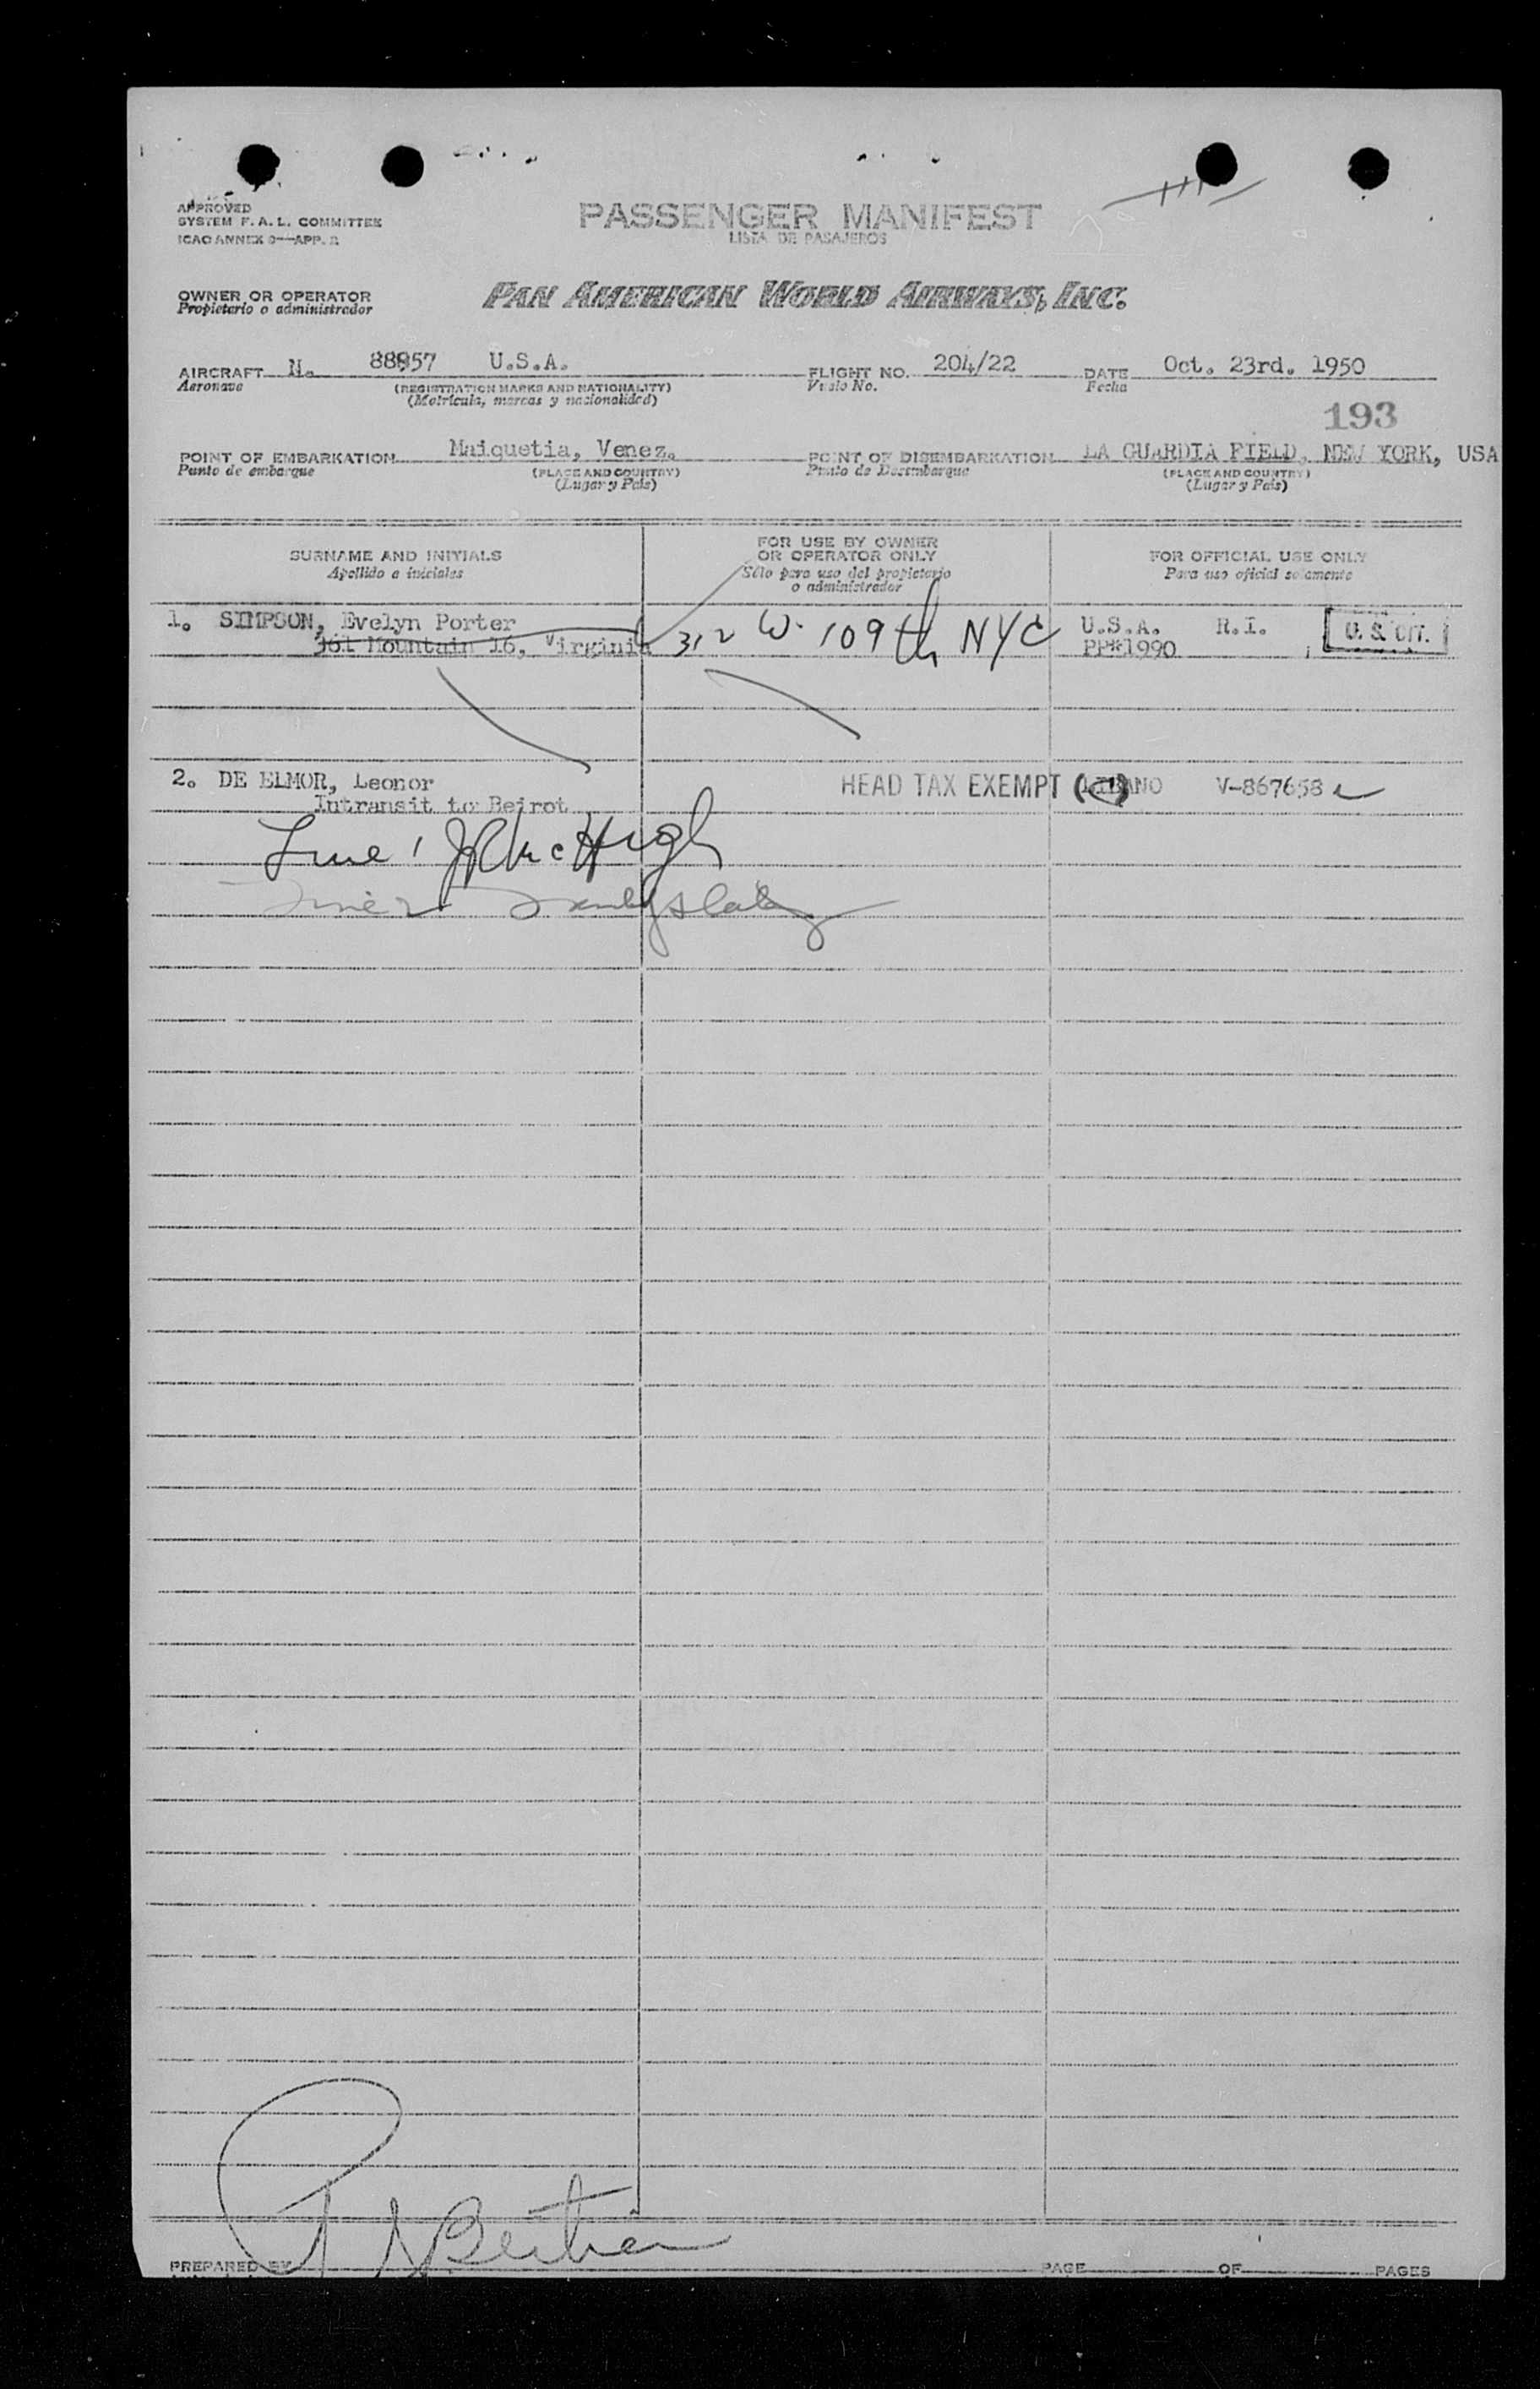 APPROVED
SYSTEM F. A. L. COMMITTEE
ICAO ANNEX 9—APP. 2
PASSENGER MANIFEST
LISTA DE PASAJEROS
OWNER OR OPERATOR
Propietario o administrador
PAN AMERICAN WORLD AIRWAYS, INC.
AIRCRAFT N. 88957 U.S.A. FLIGHT NO. 204/22 DATE Oct. 23rd. 1950
Aeronave (REGISTRATION MARKS AND NATIONALITY) Vuelo No. Fecha
(Matricula, marcas y nacionalidad)
193
POINT OF EMBARKATION Maiquetia, Venez. POINT OF DISEMBARKATION LA GUARDIA FIELD, NEW YORK, USA
Punto de embarque (PLACE AND COUNTRY) Punto de Desembarque (PLACE AND COUNTRY)
(Lugar y Pais) (Lugar y Pais)
SURNAME AND INITIALS
Apellido e iniciales
FOR USE BY OWNER
OR OPERATOR ONLY
Sólo para uso del propietario
o administrador
FOR OFFICIAL USE ONLY
Para uso oficial solamente
1. SIMPSON, Evelyn Porter
361 Mountain 16, Virginia
312 W. 109th NYC
U.S.A. R.I. U.S. CIT.
PP#1990
2. DE ELMOR, Leonor HEAD TAX EXEMPT LIBANO V-867658
Intransit to Beirot
Line 1 McHugh
Line 2
PREPARED BY PAGE OF PAGES